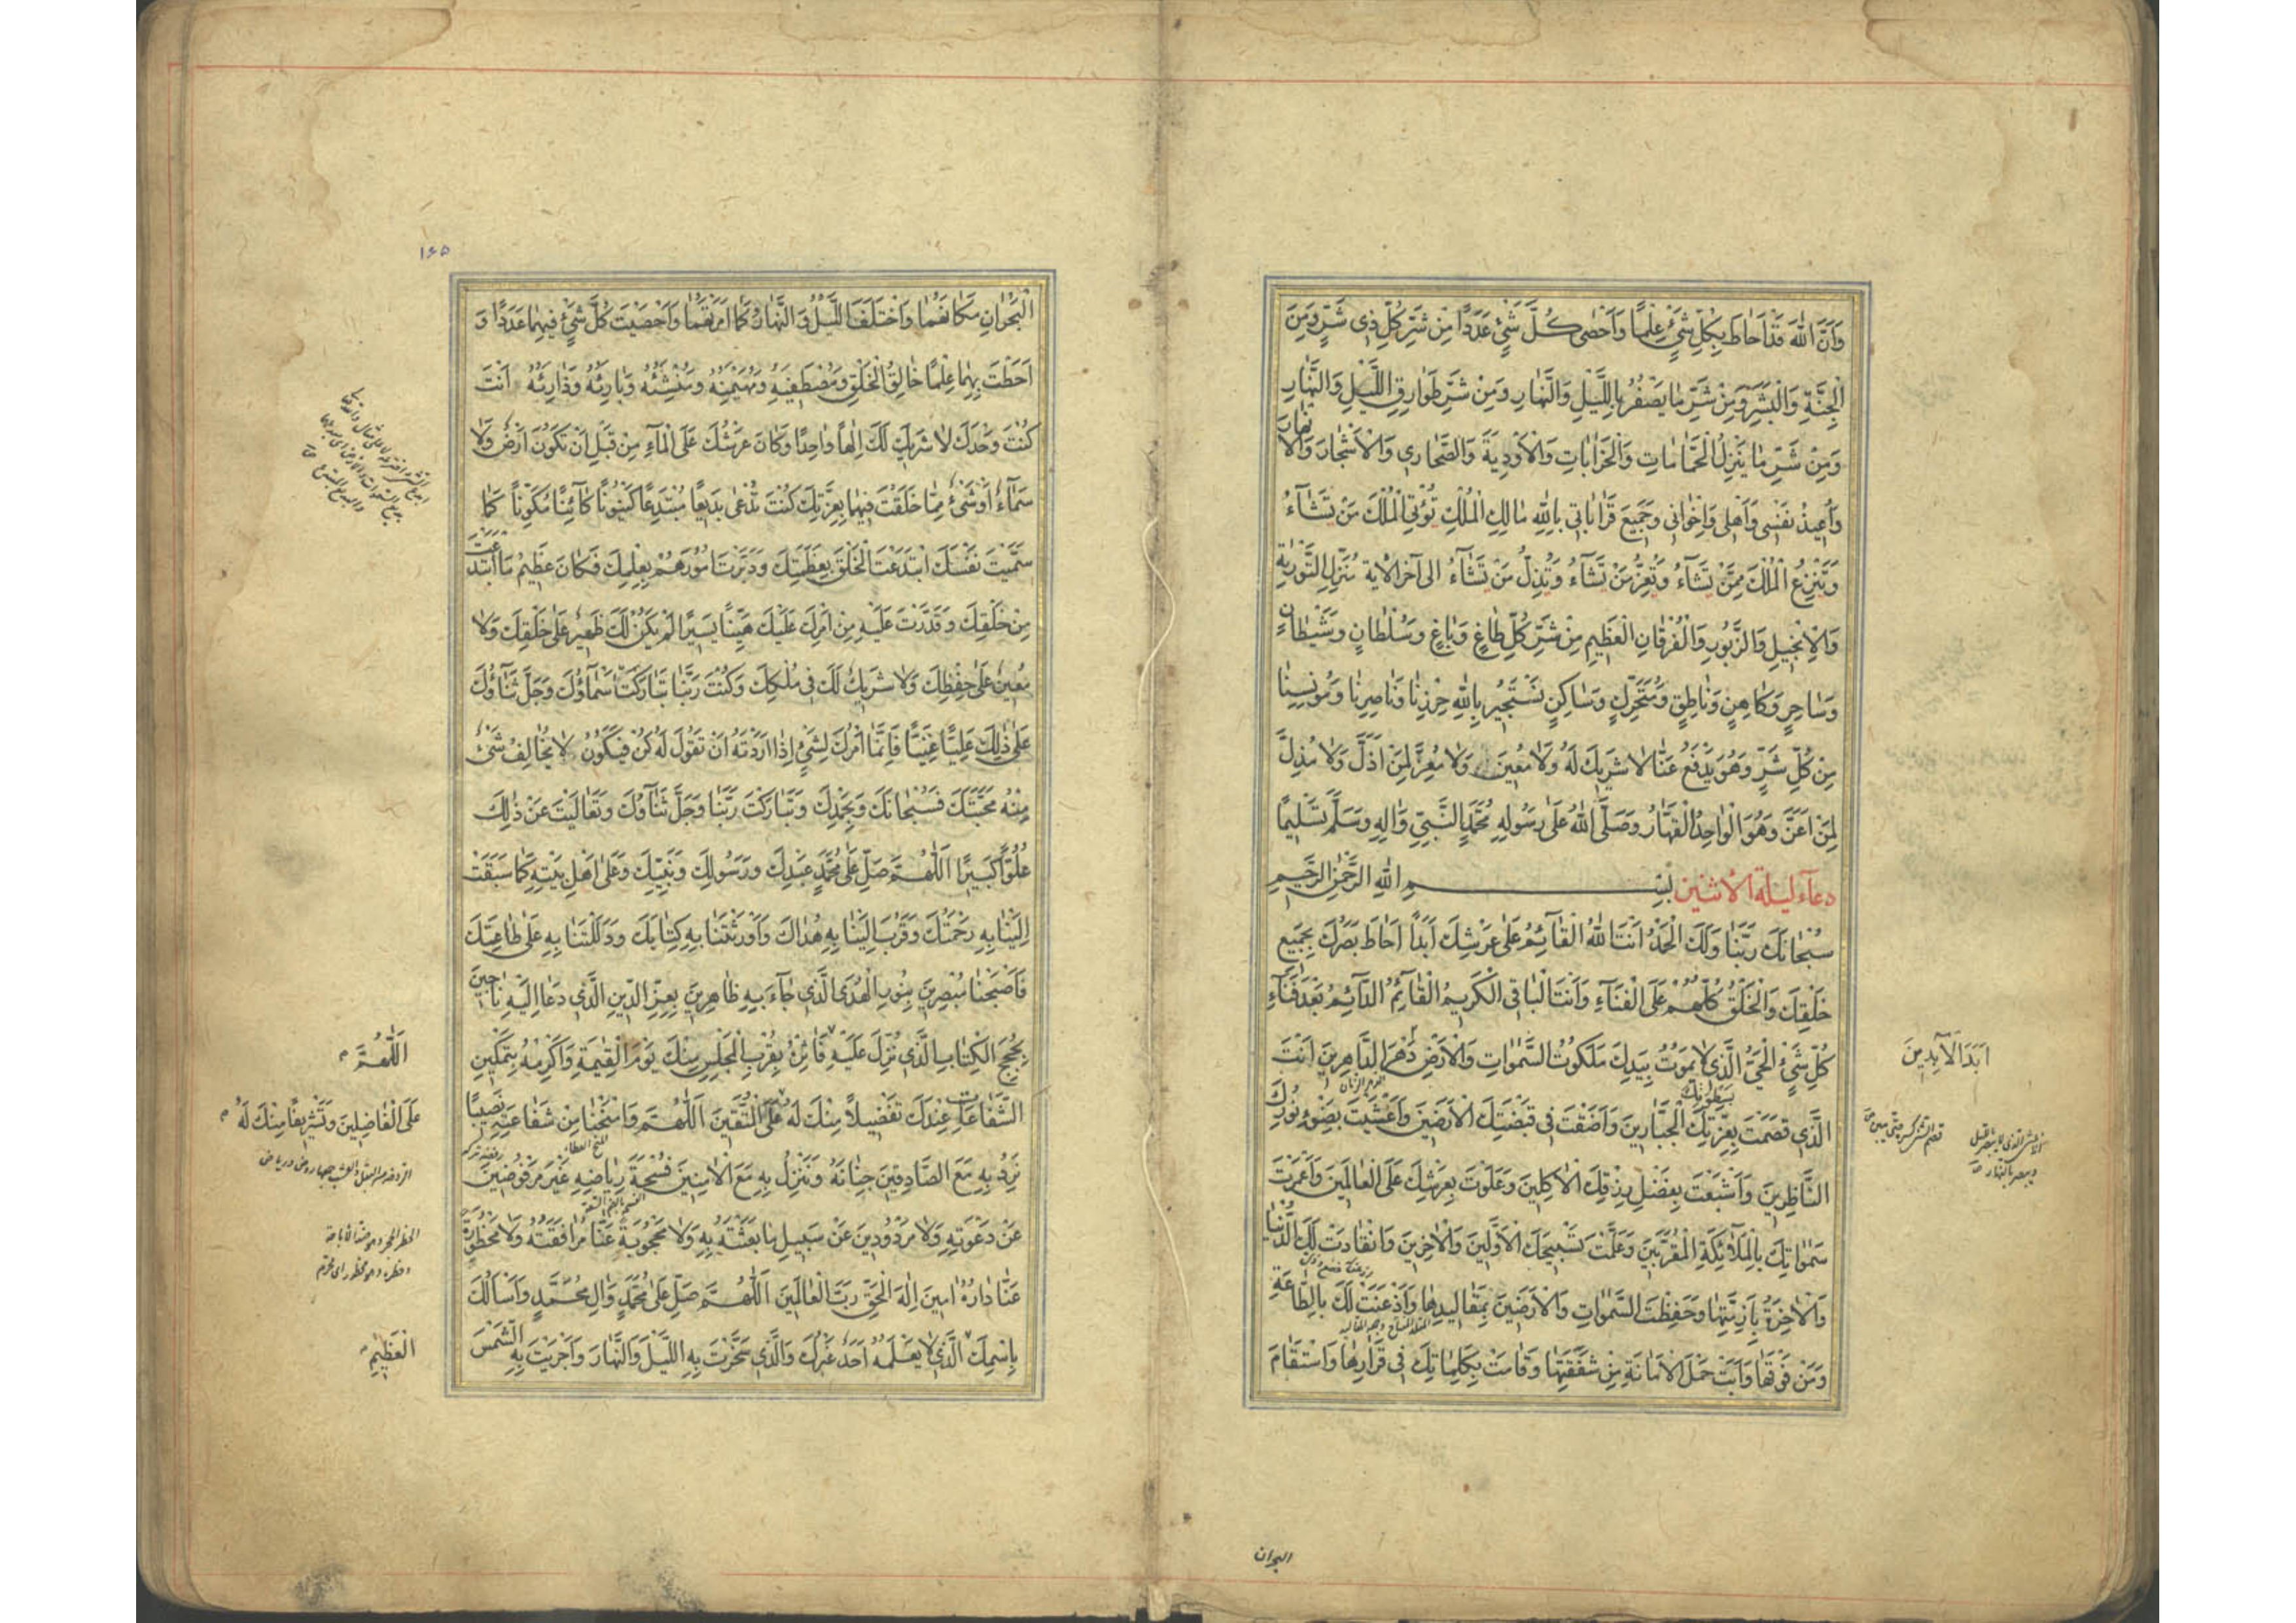 وَأَنَّ اللّٰهَ قَدْ أَحَاطَ بِكُلِّ شَيْءٍ عِلْمًا وَأَحْصٰى كُلَّ شَيْءٍ عَدَدًا مِنْ شَرِّ كُلِّ ذِي شَرٍّ وَمِنَ
الْجِنَّةِ وَالْبَشَرِ وَمِنْ شَرِّ مَا يَصْفُرُ بِاللَّيْلِ وَالنَّهَارِ وَمِنْ شَرِّ طَوَارِقِ اللَّيْلِ وَالنَّهَارِ
وَمِنْ شَرِّ مَا يَنْزِلُ الْحَمَّامَاتِ وَالْخَرَابَاتِ وَالْأَوْدِيَةَ وَالصَّحَارِي وَالْأَشْجَارَ وَالْأَنْهَارَ
وَأُعِيذُ نَفْسِي وَأَهْلِي وَإِخْوَانِي وَجَمِيعَ قَرَابَاتِي بِاللّٰهِ مَالِكِ الْمُلْكِ تُؤْتِي الْمُلْكَ مَنْ تَشَآءُ
وَتَنْزِعُ الْمُلْكَ مِمَّنْ تَشَآءُ وَتُعِزُّ مَنْ تَشَآءُ وَتُذِلُّ مَنْ تَشَآءُ الى آخر الآية مُنَزِّلِ التَّوْرٰيةِ
وَالْإِنْجِيلِ وَالزَّبُورِ وَالْفُرْقَانِ الْعَظِيمِ مِنْ شَرِّ كُلِّ طَاغٍ وَبَاغٍ وَسُلْطَانٍ وَشَيْطَانٍ
وَسَاحِرٍ وَكَاهِنٍ وَنَاطِقٍ وَمُتَحَرِّكٍ وَسَاكِنٍ نَسْتَجِيرُ بِاللّٰهِ حِرْزِنَا وَنَاصِرِنَا وَمُونِسِنَا
مِنْ كُلِّ شَرٍّ وَهُوَ يَدْفَعُ عَنَّا لَا شَرِيكَ لَهُ وَلَا مُعِينَ وَلَا مُعِزَّ لِمَنْ أَذَلَّ وَلَا مُذِلَّ
لِمَنْ أَعَزَّ وَهُوَ الْوَاحِدُ الْقَهَّارُ وَصَلَّى اللّٰهُ عَلٰى رَسُولِهِ مُحَمَّدٍ النَّبِيِّ وَاٰلِهِ وَسَلَّمَ تَسْلِيمًا
دعآء ليلة الاثنين بِسْمِ اللهِ الرَّحْمٰنِ الرَّحِيمِ
سُبْحَانَكَ رَبَّنَا وَلَكَ الْحَمْدُ أَنْتَ اللّٰهُ الْقَآئِمُ عَلٰى عَرْشِكَ أَبَدًا أَحَاطَ بَصَرُكَ بِجَمِيعِ
خَلْقِكَ وَالْخَلْقُ كُلُّهُمْ عَلَى الْفَنَآءِ وَأَنْتَ الْبَاقِي الْكَرِيمُ الْقَآئِمُ الدَّآئِمُ بَعْدَ فَنَآءِ
كُلِّ شَيْءٍ الْحَيُّ الَّذِي لَا يَمُوتُ بِيَدِكَ مَلَكُوتُ السَّمٰوَاتِ وَالْأَرْضِ دَهْرَ الدَّاهِرِينَ أَنْتَ
أَبَدَ الْآبِدِينَ
بِسَطْوَتِكَ
الَّذِي قَصَمْتَ بِعِزَّتِكَ الْجَبَّارِينَ وَأَضَفْتَ فِي قَبْضَتِكَ الْأَرَضِينَ وَأَغْشَيْتَ بِضَوْءِ نُورِكَ
النَّاظِرِينَ وَأَشْبَعْتَ بِفَضْلِ رِزْقِكَ الْاٰكِلِينَ وَعَلَوْتَ بِعَرْشِكَ عَلَى الْعَالَمِينَ وَأَعْمَرْتَ
سَمٰوَاتِكَ بِالْمَلَآئِكَةِ الْمُقَرَّبِينَ وَعَلَّمْتَ تَسْبِيحَكَ الْأَوَّلِينَ وَالْاٰخِرِينَ وَانْقَادَتْ لَكَ الدُّنْيَا
وَالْاٰخِرَةُ بِأَزِمَّتِهَا وَحَفِظْتَ السَّمٰوَاتِ وَالْأَرَضِينَ بِمَقَالِيدِهَا وَأَذْعَنَتْ لَكَ بِالطَّاعَةِ
وَمَنْ فَوْقَهَا وَأَبَتْ حَمْلَ الْأَمَانَةِ مِنْ شَفَقَتِهَا وَقَامَتْ بِكَلِمَاتِكَ فِي قَرَارِهَا وَاسْتَقَامَ
البحران
۱۶۵
الْبَحْرَانِ مَكَانَهُمَا وَاخْتَلَفَ اللَّيْلُ وَالنَّهَارُ كَمَا أَمَرْتَهُمَا وَأَحْصَيْتَ كُلَّ شَيْءٍ فِيهِمَا عَدَدًا وَ
أَحَطْتَ بِهِمَا عِلْمًا خَالِقُ الْخَلْقِ وَمُصْطَفِيهِ وَمُهَيْمِنُهُ وَمُنْشِئُهُ وَبَارِئُهُ وَذَارِئُهُ أَنْتَ
كُنْتَ وَحْدَكَ لَا شَرِيكَ لَكَ إِلٰهًا وَاحِدًا وَكَانَ عَرْشُكَ عَلَى الْمَآءِ مِنْ قَبْلِ أَنْ تَكُونَ أَرْضٌ وَلَا
سَمَآءٌ أَوْ شَيْءٌ مِمَّا خَلَقْتَ فِيهِمَا بِعِزَّتِكَ كُنْتَ تُدْعٰى بَدِيعًا مُبْتَدِعًا كَيْنُونًا كَآئِنًا مُكَوِّنًا كَمَا
سَمَّيْتَ نَفْسَكَ ابْتَدَعْتَ الْخَلْقَ بِعَظَمَتِكَ وَدَبَّرْتَ أُمُورَهُمْ بِعِلْمِكَ فَكَانَ عَظِيمُ مَا ابْتَدَعْتَ
مِنْ خَلْقِكَ وَقَدَّرْتَ عَلَيْهِ مِنْ أَمْرِكَ عَلَيْكَ هَيِّنًا يَسِيرًا لَمْ يَكُنْ لَكَ ظَهِيرٌ عَلٰى خَلْقِكَ وَلَا
مُعِينٌ عَلٰى حِفْظِكَ وَلَا شَرِيكٌ لَكَ فِي مُلْكِكَ وَكُنْتَ رَبَّنَا تَبَارَكَتْ أَسْمَآؤُكَ وَجَلَّ ثَنَآؤُكَ
عَلٰى ذٰلِكَ عَلِيًّا غَنِيًّا فَإِنَّمَا أَمْرُكَ لِشَيْءٍ إِذَا أَرَدْتَهُ أَنْ تَقُولَ لَهُ كُنْ فَيَكُونُ لَا يُخَالِفُ شَيْءٌ
مِنْهُ مَحَبَّتَكَ فَسُبْحَانَكَ وَبِحَمْدِكَ وَتَبَارَكْتَ رَبَّنَا وَجَلَّ ثَنَآؤُكَ وَتَعَالَيْتَ عَنْ ذٰلِكَ
عُلُوًّا كَبِيرًا اَللّٰهُمَّ صَلِّ عَلٰى مُحَمَّدٍ عَبْدِكَ وَرَسُولِكَ وَنَبِيِّكَ وَعَلٰى أَهْلِ بَيْتِهِ كَمَا سَبَقَتْ
إِلَيْنَا بِهِ رَحْمَتُكَ وَقَرُبَ إِلَيْنَا بِهِ هُدَاكَ وَأَوْرَثْتَنَا بِهِ كِتَابَكَ وَدَلَلْتَنَا بِهِ عَلٰى طَاعَتِكَ
فَأَصْبَحْنَا مُبْصِرِينَ بِنُورِ الْهُدَى الَّذِي جَآءَ بِهِ ظَاهِرِينَ بِعِزِّ الدِّينِ الَّذِي دَعَا إِلَيْهِ نَاجِينَ
بِحُجَجِ الْكِتَابِ الَّذِي نُزِّلَ عَلَيْهِ فَاٰثِرْهُ بِقُرْبِ الْمَجْلِسِ مِنْكَ يَوْمَ الْقِيٰمَةِ وَأَكْرِمْهُ بِتَمْكِينِ
اَللّٰهُمَّ
الشَّفَاعَاتِ عِنْدَكَ تَفْضِيلًا مِنْكَ لَهُ عَلَى الْمُتَّقِينَ اَللّٰهُمَّ وَامْنَحْنَا مِنْ شَفَاعَتِهِ نَصِيبًا
عَلَى الْفَاضِلِينَ وَتَشْرِيفًا مِنْكَ لَهُ
نَرِدُ بِهِ مَعَ الصَّادِقِينَ جِنَانَهُ وَنَنْزِلُ بِهِ مَعَ الْاٰمِنِينَ فُسْحَةَ رِيَاضِهِ غَيْرَ مَرْفُوضِينَ
عَنْ دَعْوَتِهِ وَلَا مَرْدُودِينَ عَنْ سَبِيلِ مَا بَعَثْتَهُ بِهِ وَلَا مَحْجُوبَةً عَنَّا مُرَافَقَتُهُ وَلَا مَحْظُورَةً
عَنَّا دَارُهُ اٰمِينَ إِلٰهَ الْحَقِّ رَبَّ الْعَالَمِينَ اَللّٰهُمَّ صَلِّ عَلٰى مُحَمَّدٍ وَاٰلِ مُحَمَّدٍ وَأَسْأَلُكَ
بِاسْمِكَ الَّذِي لَا يَعْلَمُهُ أَحَدٌ غَيْرُكَ وَالَّذِي سَخَّرْتَ بِهِ اللَّيْلَ وَالنَّهَارَ وَأَجْرَيْتَ بِهِ الشَّمْسَ
الْعَظِيمِ